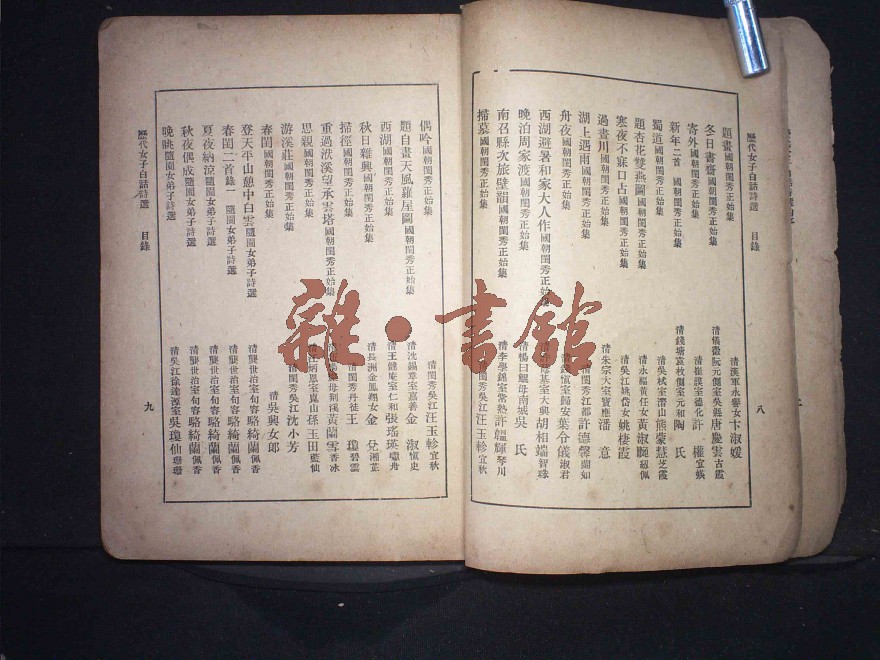 歷代女子白話詩選 目錄 八
題畫國朝閨秀正始集 清漢軍永譽女卞淑媛
冬日書齋國朝閨秀正始集 清儀徵阮元側室吳縣唐慶雲古霞
寄外國朝閨秀正始集 清崔謨室德化許權宜媖
新年二首 國朝閨秀正始集 清錢塘袁枚側室元和陶氏
蜀道國朝閨秀正始集 清吳栻室潛山熊蒙慧芝霞
題杏花雙燕圖國朝閨秀正始集 清永福黃任女黃淑畹紉佩
寒夜不寐口占國朝閨秀正始集 清吳江姚岱女姚棲霞
過晝川國朝閨秀正始集 清朱宗大室寶應潘意
湖上遇雨國朝閨秀正始集 清閨秀江都許德馨蘭如
舟夜國朝閨秀正始集 清慎室歸安葉令儀淑君
西湖避暑和家大人作國朝閨秀正始集 基室大興胡相端智珠
晚泊周家渡國朝閨秀正始集 清楊曰鯤母南城吳氏
南召縣次旅壁韻國朝閨秀正始集 清李學錦室常熟許韞輝琴川
掃墓國朝閨秀正始集 清閨秀吳江汪玉軫宜秋
偶吟國朝閨秀正始集 清閨秀吳江汪玉軫宜秋
題自畫天風蘿屋圖國朝閨秀正始集 清沈錫章室嘉善金淑慎史
西湖國朝閨秀正始集 清王健庵室仁和張瑤瑛
秋日雜興國朝閨秀正始集 清長洲金鳳翔女金兌湘芷
掃徑國朝閨秀正始集 清閨秀丹徒王瓊碧雲
重過洑溪望承雲塔國朝閨秀正始集 母荆溪黃蘭雪香冰
思親國朝閨秀正始集 清汪炳恩室崑山孫玉田藍仙
游溪莊國朝閨秀正始集 清閨秀吳江沈小芳
春閨國朝閨秀正始集 清吳興女郎
登天平山憩中白雲隨園女弟子詩選 清龔世治室句容駱綺蘭佩香
春閨二首錄一 隨園女弟子詩選 清龔世治室句容駱綺蘭佩香
夏夜納涼隨園女弟子詩選 清龔世治室句容駱綺蘭佩香
秋夜偶成隨園女弟子詩選 清龔世治室句容駱綺蘭佩香
晚眺隨園女弟子詩選 清吳江徐達源室吳瓊仙珊珊
歷代女子白話詩選 目錄 九
雜·書館